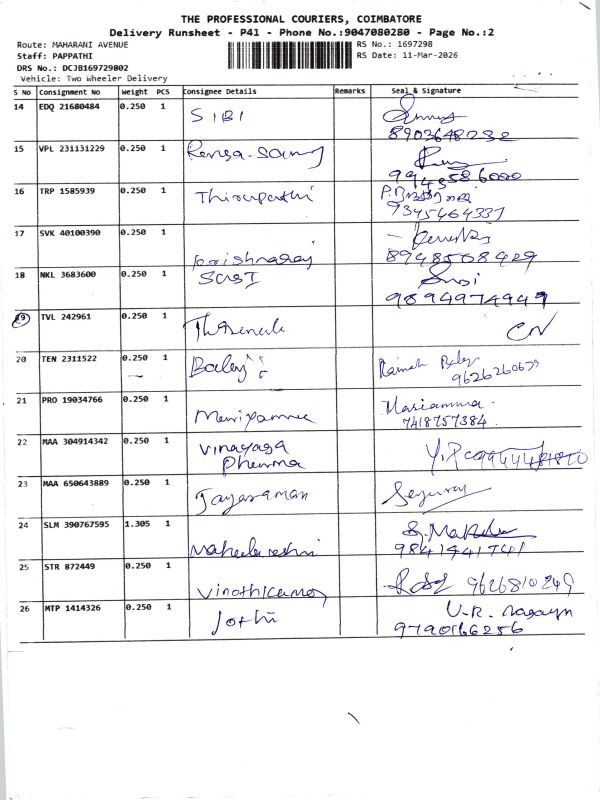 THE PROFESSIONAL COURIERS, COIMBATORE
Delivery Runsheet - P41 - Phone No.:9047080280 - Page No.:2
Route: MAHARANI AVENUE RS No.: 1697298
Staff: PAPPATHI RS Date: 11-Mar-2026
DRS No.: DCJB169729802
Vehicle: Two Wheeler Delivery
S No Consignment No Weight PCS Consignee Details Remarks Seal & Signature
14 EDQ 21680484 0.250 1 SIBI
8903648232
15 VPL 231131229 0.250 1
9943586000
16 TRP 1585939 0.250 1 Thirupathi
9345464337
17 SVK 40100390 0.250 1
Krishnaraj 8948568429
18 NKL 3683600 0.250 1 SASI
9894974949
19 TVL 242961 0.250 1 CN
20 TEN 2311522 0.250 1 Balaji
21 PRO 19034766 0.250 1 Mariamma
7418757384
22 MAA 304914342 0.250 1 Vinayaga
Pharma
23 MAA 650643889 0.250 1 Jayaraman
24 SLM 390767595 1.305 1
Maheshwari 9841941741
25 STR 872449 0.250 1
Vinothkumar 9626810249
26 MTP 1414326 0.250 1 Jothi
9790166256